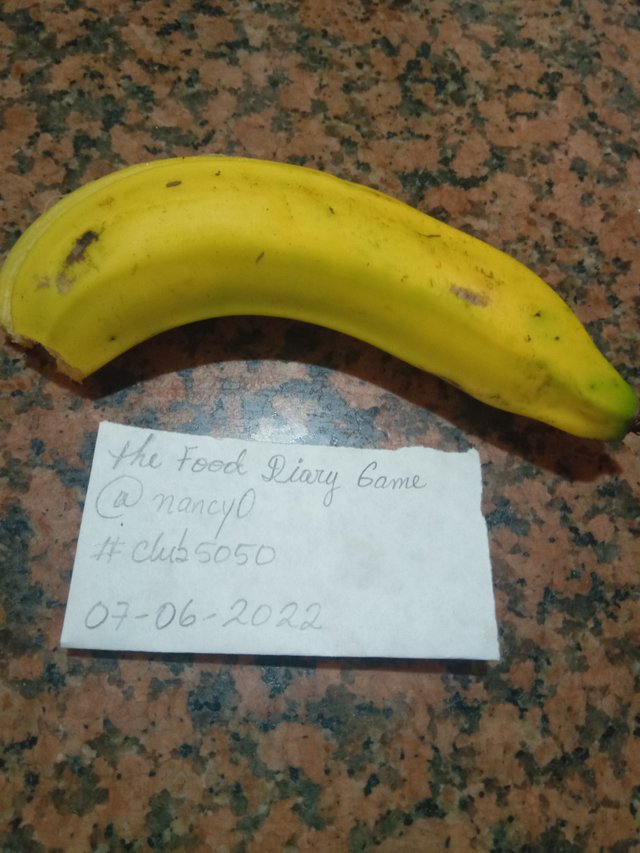 the Food Diary Game
@nancy0
#club5050
07-06-2022